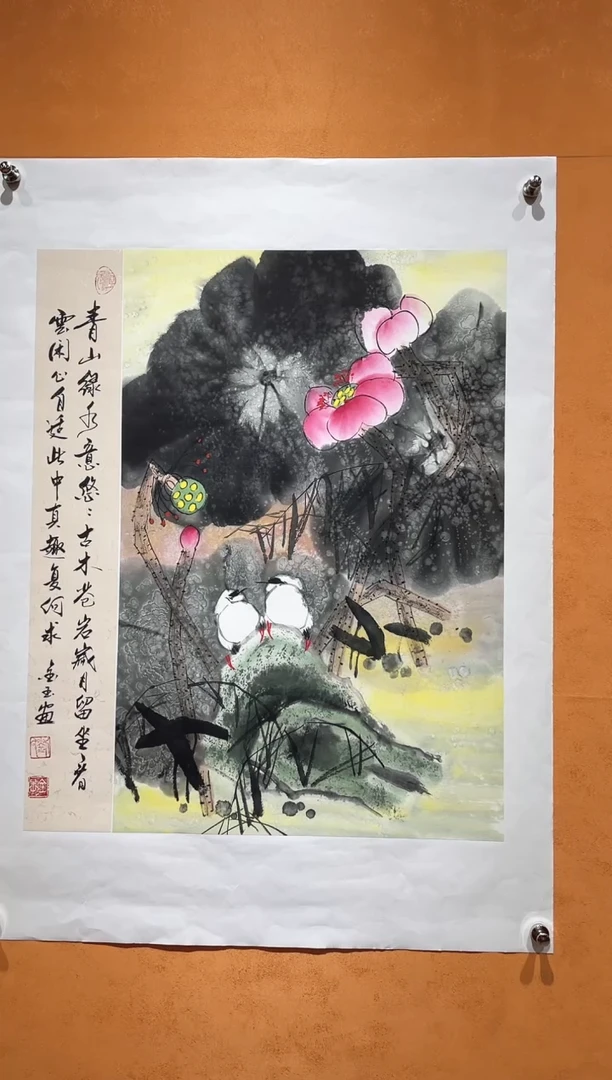 青山綠水意悠〻古木苍岩歲月留坐看
雲闲心自远此中真趣复何求 金玉画